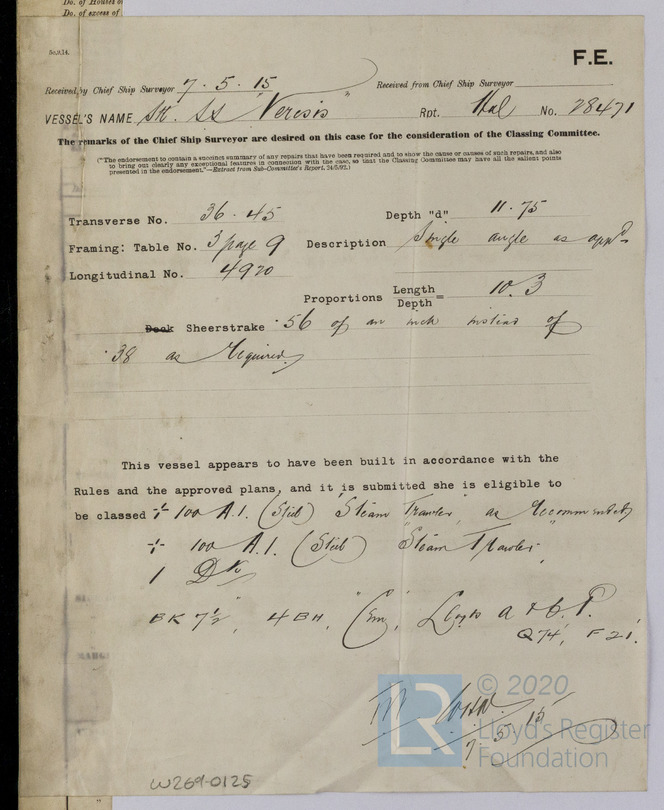 Do. of Houses o
Do. of excess of
5o,9.14.
F.E.
Received by Chief Ship Surveyor 7 . 5 . 15 Received from Chief Ship Surveyor
VESSEL'S NAME Str. SS "Neresis" Rpt. Hul No. 28471
The remarks of the Chief Ship Surveyor are desired on this case for the consideration of the Classing Committee.
("The endorsement to contain a succinct summary of any repairs that have been required and to show the cause or causes of such repairs, and also
to bring out clearly any exceptional features in connection with the case, so that the Classing Committee may have all the salient points
presented in the endorsement."—Extract from Sub-Committee's Report, 24/5/92.)
Transverse No. 36.45 Depth "d" 11.75
Framing: Table No. 3 page 9 Description Single angle as appd
Longitudinal No. 4970
Proportions Length/Depth = 10.3
Deck Sheerstrake .56 of an inch instead of
.38 as required
This vessel appears to have been built in accordance with the
Rules and the approved plans, and it is submitted she is eligible to
be classed + 100 A.1. (Steel) "Steam Trawler" as recommended
+ 100 A.1. (Steel) "Steam Trawler"
1 Dk
BK 7½", 4 BH, (Cem), Lloyds A & C.P.
Q 74', F 21'.
7.5.15
LR © 2020
Lloyd's Register
Foundation
W269-0125